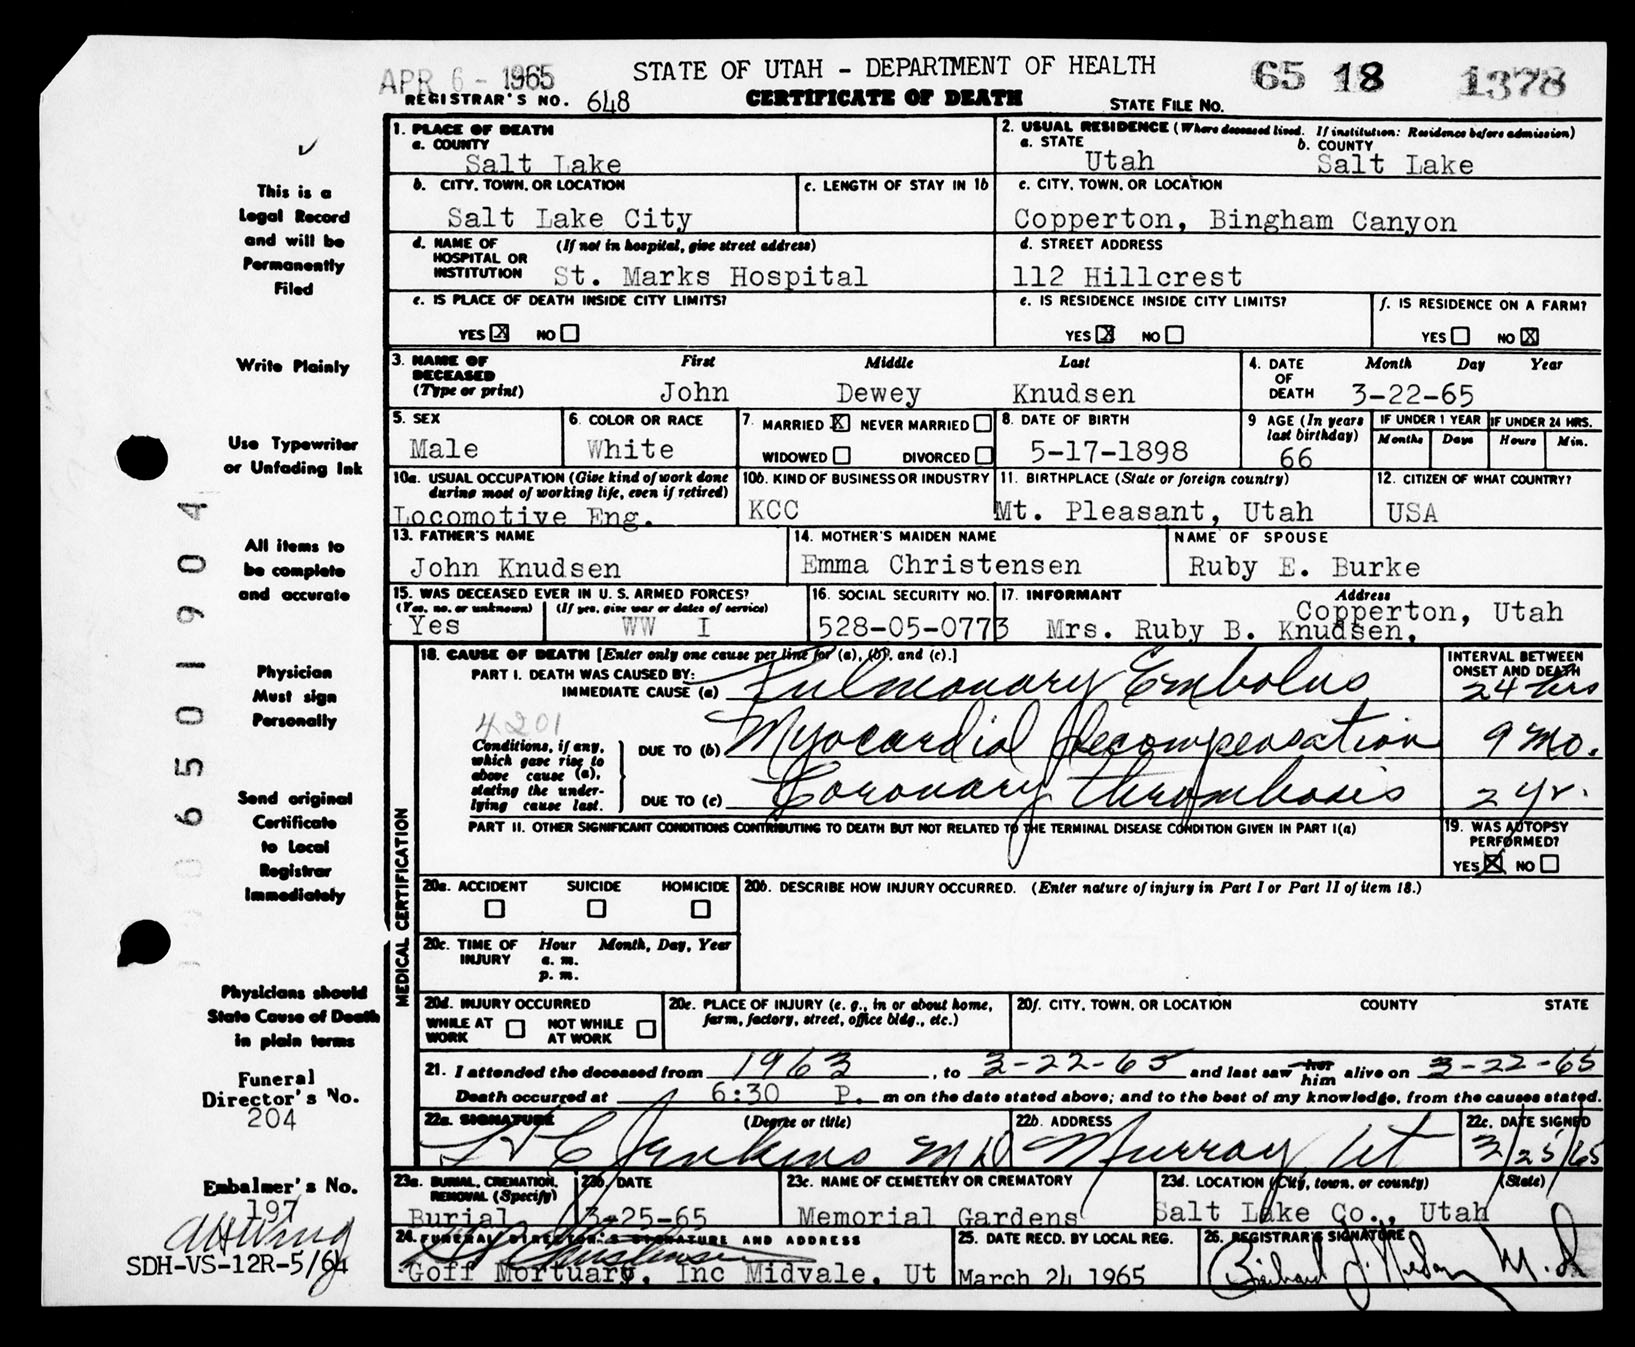 APR 6 - 1965
STATE OF UTAH - DEPARTMENT OF HEALTH
65 18 1378
REGISTRAR'S NO. 648
CERTIFICATE OF DEATH
STATE FILE NO.
This is a
Legal Record
and will be
Permanently
Filed
Write Plainly
Use Typewriter
or Unfading Ink
All items to
be complete
and accurate
Physician
Must sign
Personally
Send original
Certificate
to Local
Registrar
Immediately
Physicians should
State Cause of Death
in plain terms
Funeral
Director's No.
204
Embalmer's No.
197
SDH-VS-12R-5/64
6501904
1. PLACE OF DEATH
a. COUNTY
Salt Lake
2. USUAL RESIDENCE (Where deceased lived. If institution: Residence before admission)
a. STATE b. COUNTY
Utah Salt Lake
b. CITY, TOWN, OR LOCATION
Salt Lake City
c. LENGTH OF STAY IN 1b
c. CITY, TOWN, OR LOCATION
Copperton, Bingham Canyon
d. NAME OF (If not in hospital, give street address)
HOSPITAL OR
INSTITUTION St. Marks Hospital
d. STREET ADDRESS
112 Hillcrest
e. IS PLACE OF DEATH INSIDE CITY LIMITS?
YES X NO
e. IS RESIDENCE INSIDE CITY LIMITS?
YES X NO
f. IS RESIDENCE ON A FARM?
YES NO X
3. NAME OF First Middle Last
DECEASED
(Type or print) John Dewey Knudsen
4. DATE Month Day Year
OF
DEATH 3-22-65
5. SEX
Male
6. COLOR OR RACE
White
7. MARRIED X NEVER MARRIED
WIDOWED DIVORCED
8. DATE OF BIRTH
5-17-1898
9 AGE (In years
last birthday)
66
IF UNDER 1 YEAR
Months Days
IF UNDER 24 HRS.
Hours Min.
10a. USUAL OCCUPATION (Give kind of work done
during most of working life, even if retired)
Locomotive Eng.
10b. KIND OF BUSINESS OR INDUSTRY
KCC
11. BIRTHPLACE (State or foreign country)
Mt. Pleasant, Utah
12. CITIZEN OF WHAT COUNTRY?
USA
13. FATHER'S NAME
John Knudsen
14. MOTHER'S MAIDEN NAME
Emma Christensen
NAME OF SPOUSE
Ruby E. Burke
15. WAS DECEASED EVER IN U. S. ARMED FORCES?
(Yes, no, or unknown) (If yes, give war or dates of service)
Yes WW I
16. SOCIAL SECURITY NO.
528-05-0773
17. INFORMANT Address
Copperton, Utah
Mrs. Ruby B. Knudsen,
MEDICAL CERTIFICATION
18. CAUSE OF DEATH [Enter only one cause per line for (a), (b), and (c).]
INTERVAL BETWEEN
ONSET AND DEATH
PART I. DEATH WAS CAUSED BY:
IMMEDIATE CAUSE (a) Pulmonary Embolus 24 hrs
4201
Conditions, if any,
which gave rise to
above cause (a),
stating the under-
lying cause last.
DUE TO (b) Myocardial decompensation 9 mo.
DUE TO (c) Coronary thrombosis 2 yr.
PART II. OTHER SIGNIFICANT CONDITIONS CONTRIBUTING TO DEATH BUT NOT RELATED TO THE TERMINAL DISEASE CONDITION GIVEN IN PART I(a)
19. WAS AUTOPSY
PERFORMED?
YES X NO
20a. ACCIDENT SUICIDE HOMICIDE
20b. DESCRIBE HOW INJURY OCCURRED. (Enter nature of injury in Part I or Part II of item 18.)
20c. TIME OF Hour Month, Day, Year
INJURY a. m.
p. m.
20d. INJURY OCCURRED
WHILE AT WORK NOT WHILE AT WORK
20e. PLACE OF INJURY (e. g., in or about home,
farm, factory, street, office bldg., etc.)
20f. CITY, TOWN, OR LOCATION COUNTY STATE
21. I attended the deceased from 1963, to 3-22-65 and last saw her him alive on 3-22-65
Death occurred at 6:30 P. m on the date stated above; and to the best of my knowledge, from the causes stated.
22a. SIGNATURE (Degree or title)
Jenkins MD
22b. ADDRESS
Murray Ut
22c. DATE SIGNED
3/25/65
23a. BURIAL, CREMATION,
REMOVAL (Specify)
Burial
23b. DATE
3-25-65
23c. NAME OF CEMETERY OR CREMATORY
Memorial Gardens
23d. LOCATION (City, town, or county) (State)
Salt Lake Co., Utah
24. FUNERAL DIRECTOR'S SIGNATURE AND ADDRESS
Goff Mortuary, Inc Midvale, Ut
25. DATE RECD. BY LOCAL REG.
March 24 1965
26. REGISTRAR'S SIGNATURE
M.D